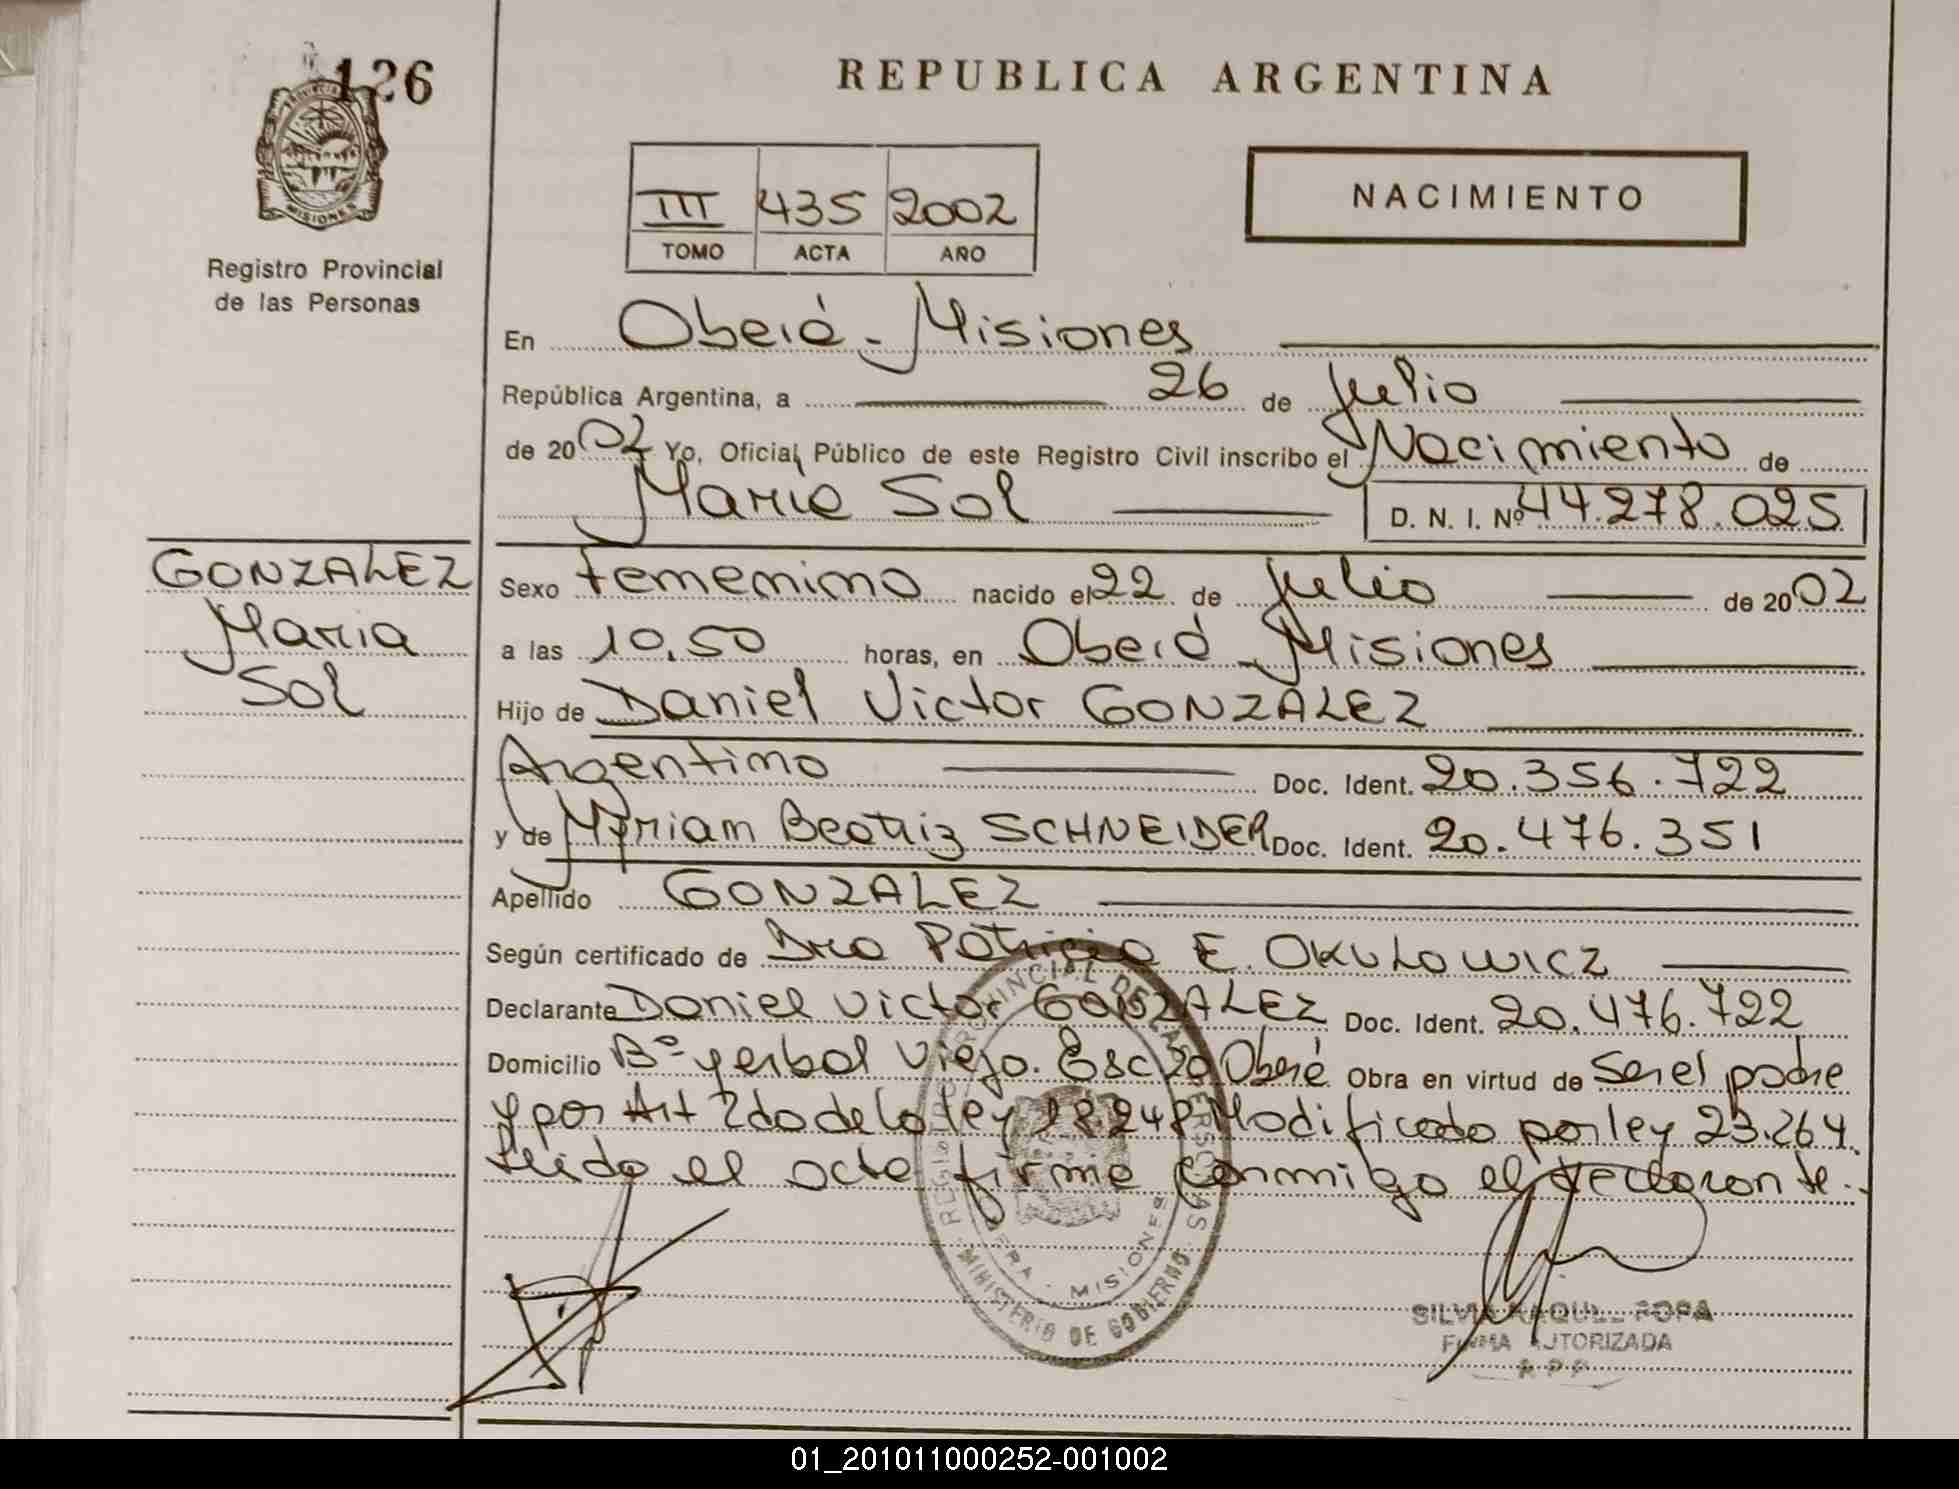 126
REPUBLICA ARGENTINA
PROVINCIA
MISIONES
Registro Provincial
de las Personas
III 435 2002
TOMO ACTA AÑO
NACIMIENTO
En Oberá - Misiones
República Argentina, a 26 de Julio
de 2002 Yo, Oficial Público de este Registro Civil inscribo el Nacimiento de
Maria Sol D. N. I. Nº 44.278.025
GONZALEZ
Maria
Sol
Sexo femenino nacido el 22 de Julio de 2002
a las 10,50 horas, en Oberá - Misiones
Hijo de Daniel Victor GONZALEZ
Argentino Doc. Ident. 20.356.722
y de Myriam Beatriz SCHNEIDER Doc. Ident. 20.476.351
Apellido GONZALEZ
Según certificado de Dra Patricia E. OKULOWICZ
Declarante Daniel Victor GONZALEZ Doc. Ident. 20.476.722
Domicilio Bº yerbal Viejo. Oberá Obra en virtud de ser el padre
y por Art 2do de la ley 18248 Modificado por ley 23.264.
Leido el acta firma conmigo el declarante.
REGISTRO PROVINCIAL DE LAS PERSONAS
MINISTERIO DE GOBIERNO
MISIONES
SILVIA RAQUEL POPA
FIRMA AUTORIZADA
R.P.P.
01_201011000252-001002